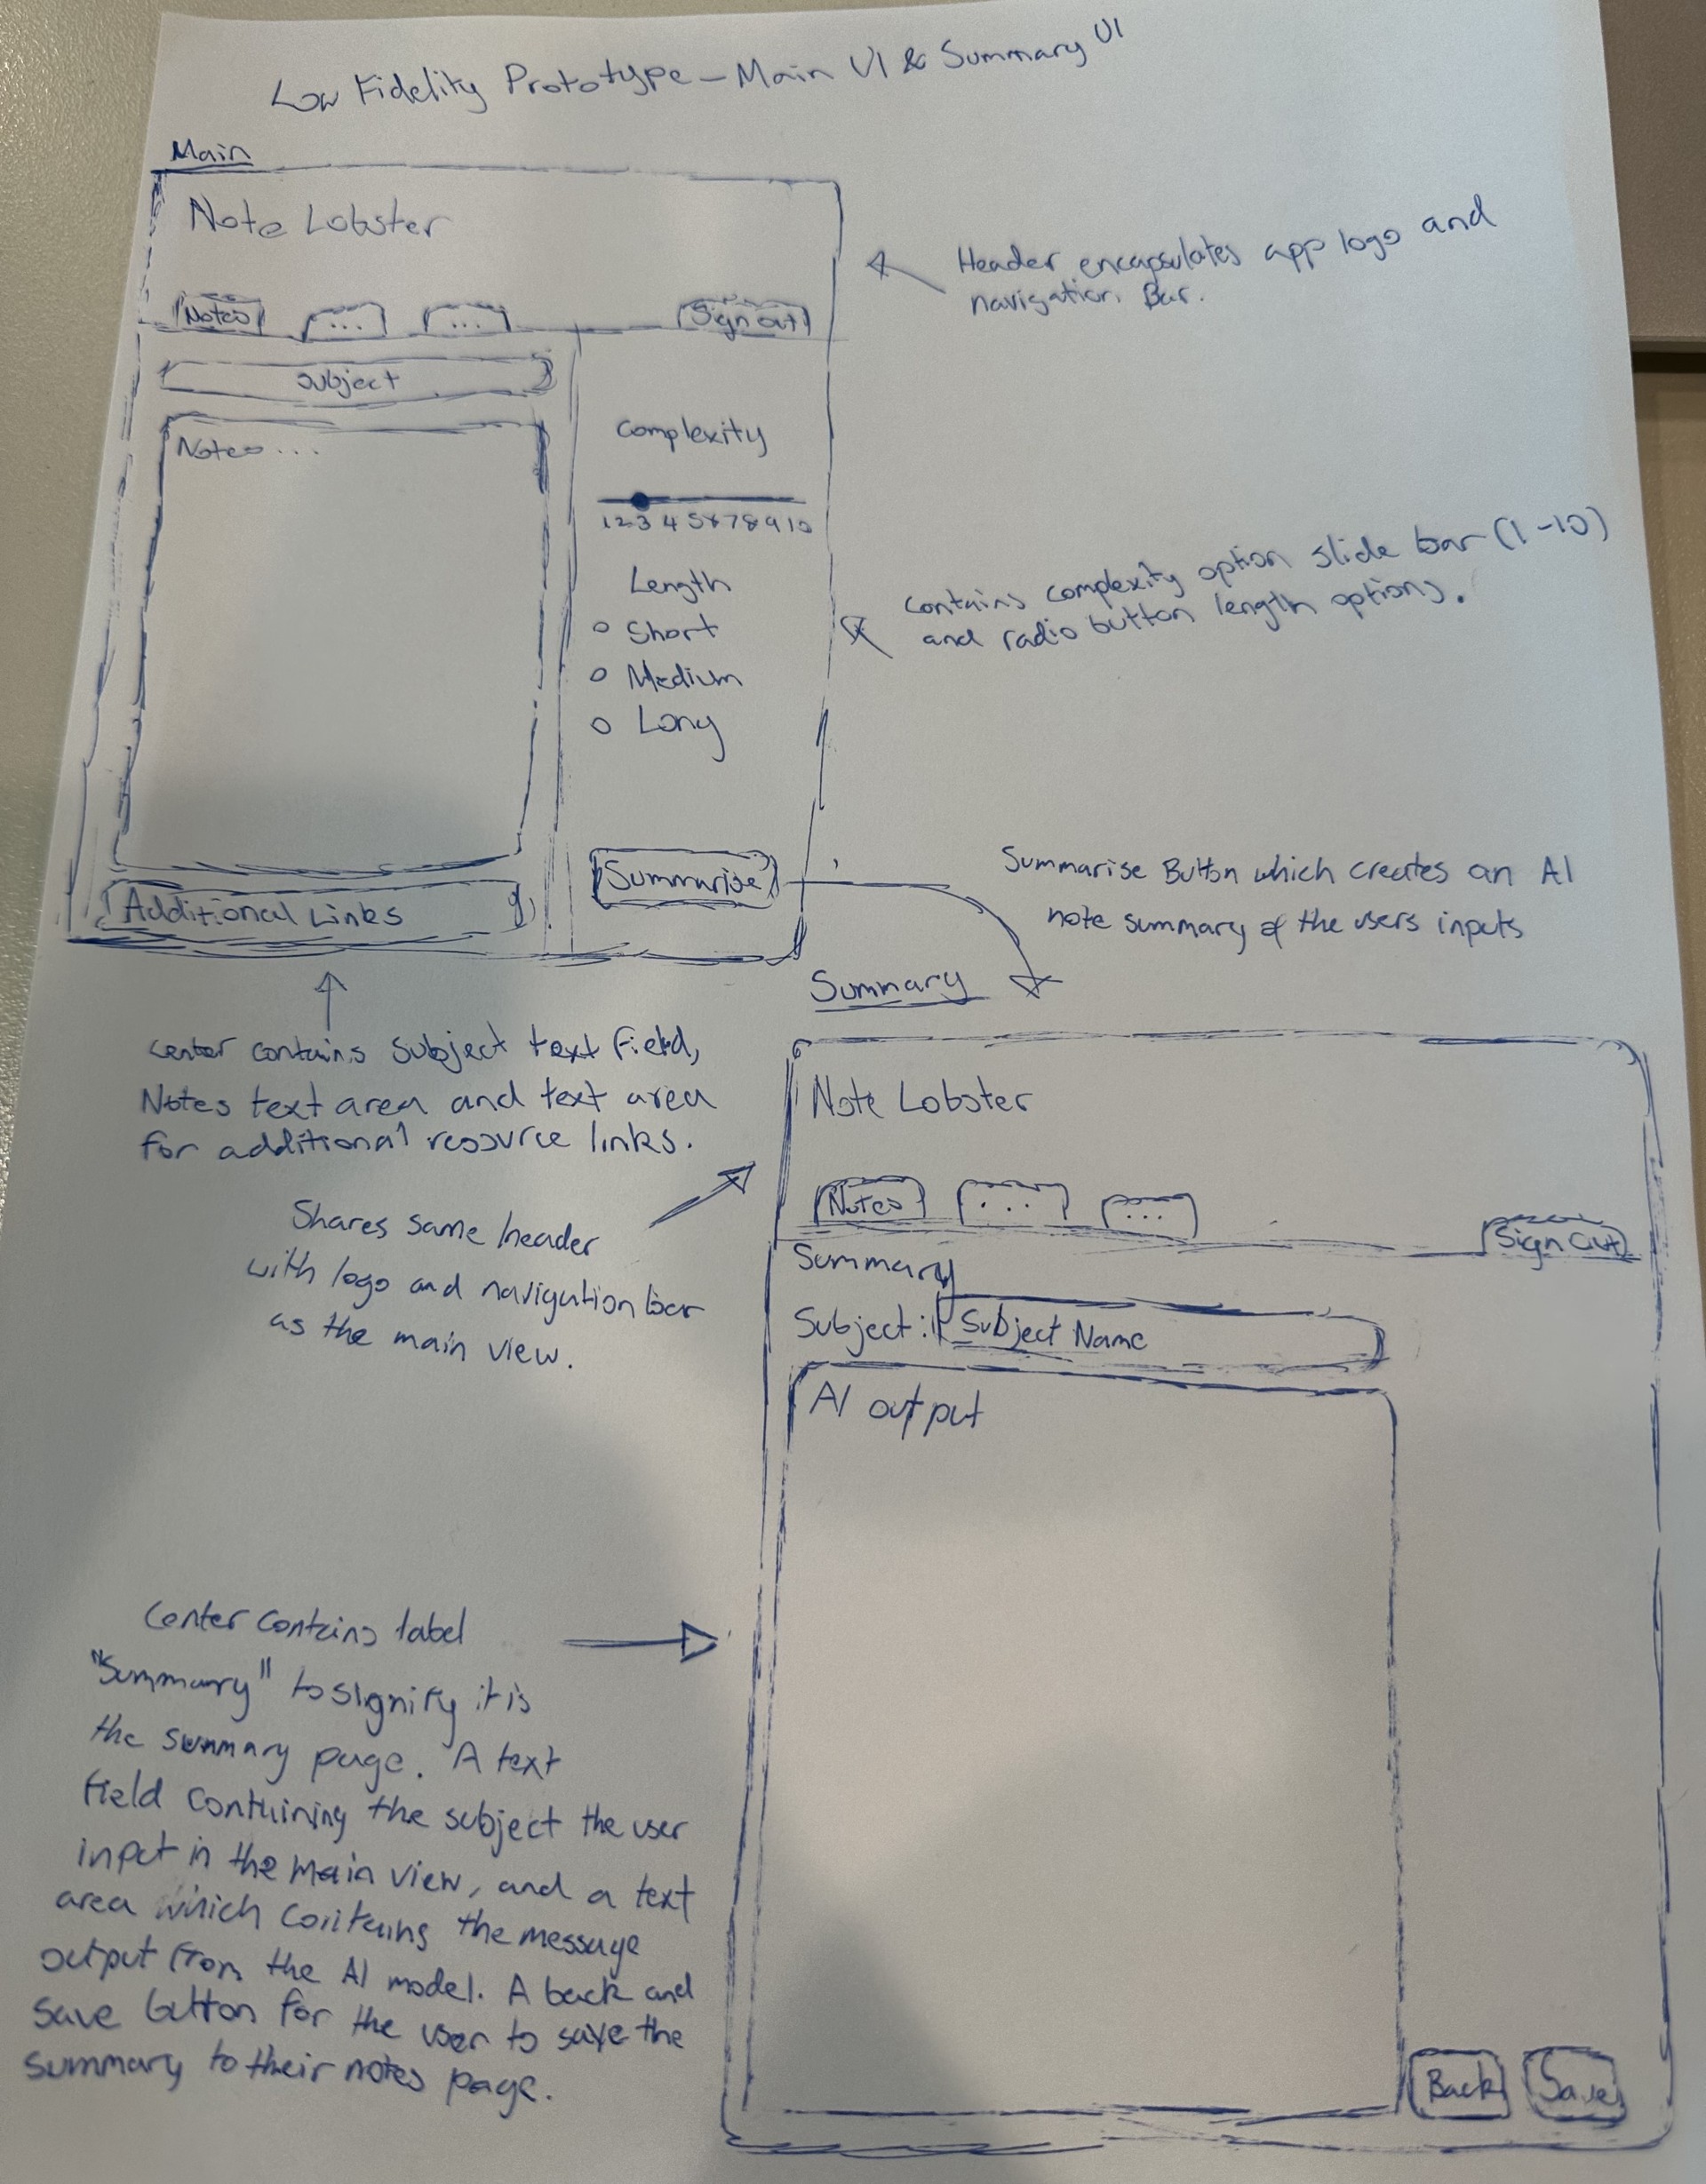 Low Fidelity Prototype - Main UI & Summary UI
Main
Note Lobster
Notes ... ... Sign out
Subject
Notes...
Complexity
1 2 3 4 5 6 7 8 9 10
Length
Short
Medium
Long
Summarise
Additional Links
Header encapsulates app logo and
navigation Bar.
contains complexity option slide bar (1-10)
and radio button length options.
Summarise Button which creates an AI
note summary of the users inputs
center contains subject text field,
Notes text area and text area
for additional resource links.
Summary
Note Lobster
Notes ... ... Sign Out
Summary
Subject: Subject Name
AI output
Back Save
Shares same header
with logo and navigation bar
as the main view.
Center contains label
"Summary" to signify it is
the summary page. A text
field containing the subject the user
input in the main view, and a text
area which contains the message
output from the AI model. A back and
save button for the user to save the
summary to their notes page.